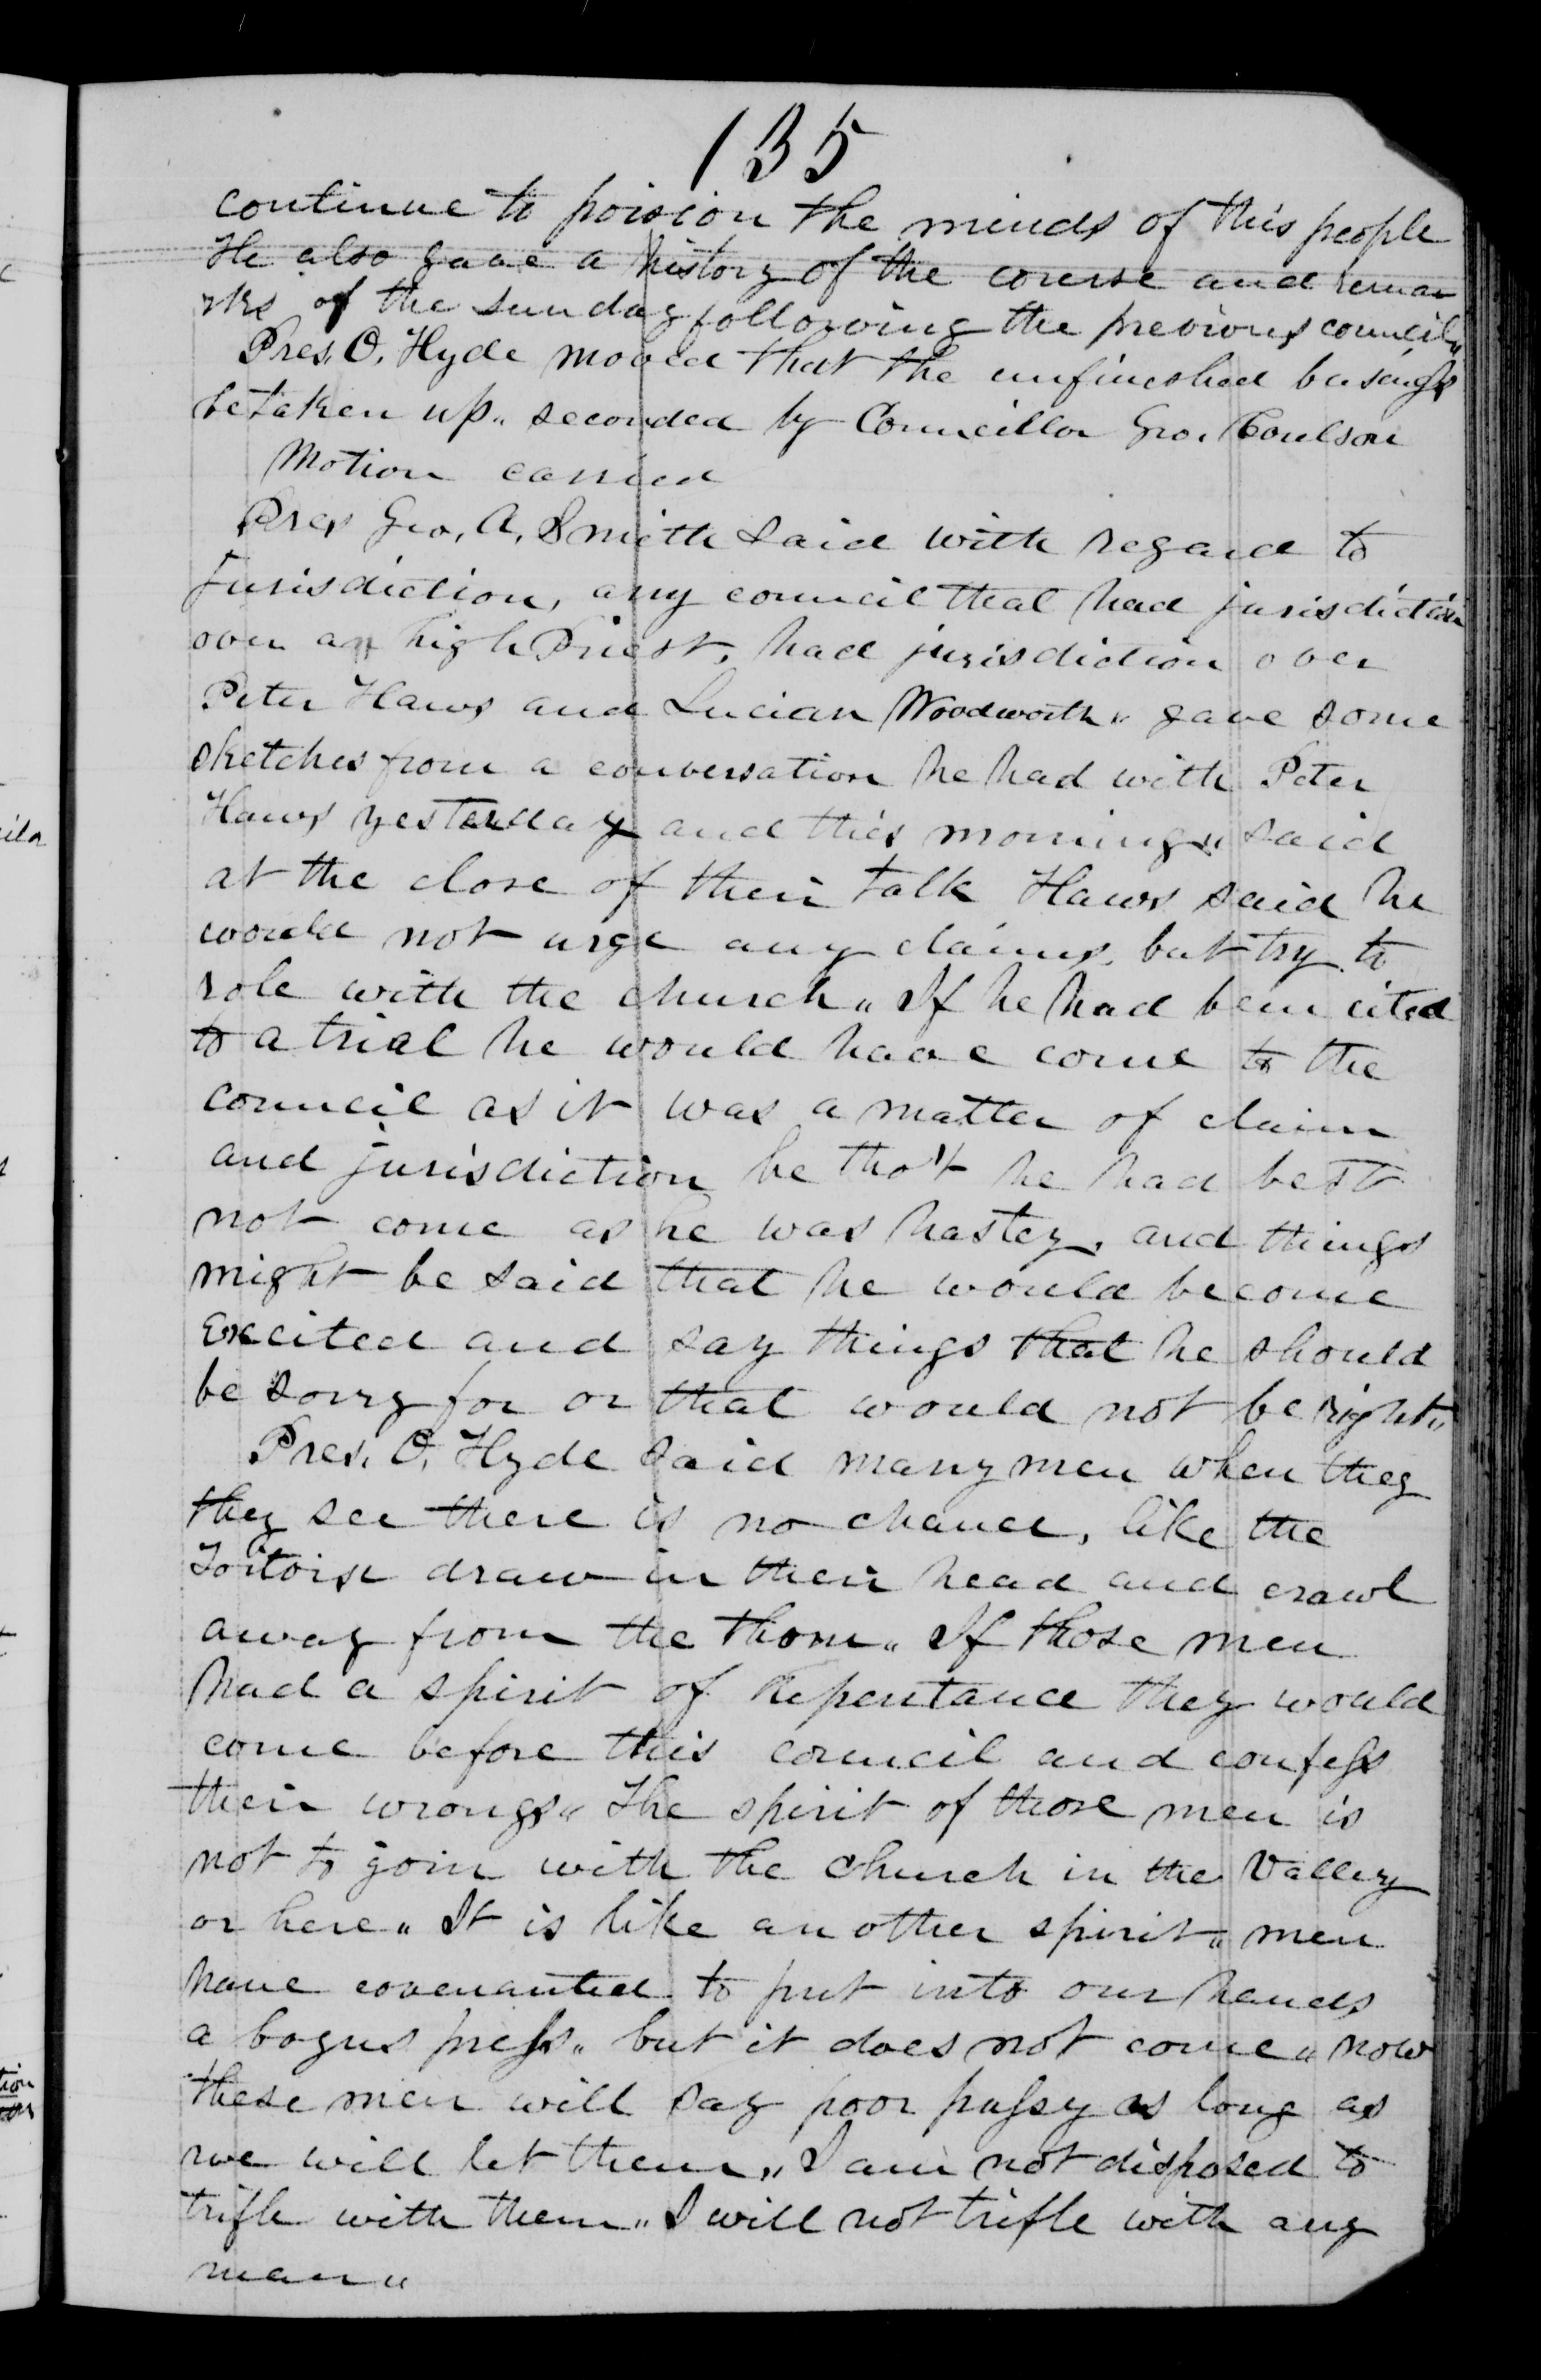 135
continue to poision the minds of this people
He also gave a history of the course and remar
rks of the sunday following the previous council"
Pres. O. Hyde moved that the unfineshed business
be taken up" seconded by Councillor Geo. Coulson
Motion carried
Pres Geo. A. Smith said with regard to
Jurisdiction, any council that had jurisdiction
over a high Priest, had jurisdiction over
Peter Haws and Lucian Woodworth" gave some
sketches from a conversation he had with Peter
Haws yesterday and this morning" said
at the close of their talk Haws said he
would not urge any claims, but try to
role with the church" If he had been cited
to a trial he would have come to the
council as it was a matter of claim
and jurisdiction he tho't he had best
not come as he was hastey, and things
might be said that he would become
excited and say things that he should
be sorry for or that would not be right"
Pres. O. Hyde said many men when they
they see there is no chance, like the
Tortoise draw in their head and crawl
away from the thorn" If those men
had a spirit of repentance they would
come before this council and confess
their wrongs" The spirit of those men is
not to join with the church in the Valley
or here" It is like an other spirit" men
have covenanted to put into our hands
a bogus press" but it does not come" now
these men will say poor pussy as long as
we will let them" I am not disposed to
trifle with them" I will not trifle with any
man"